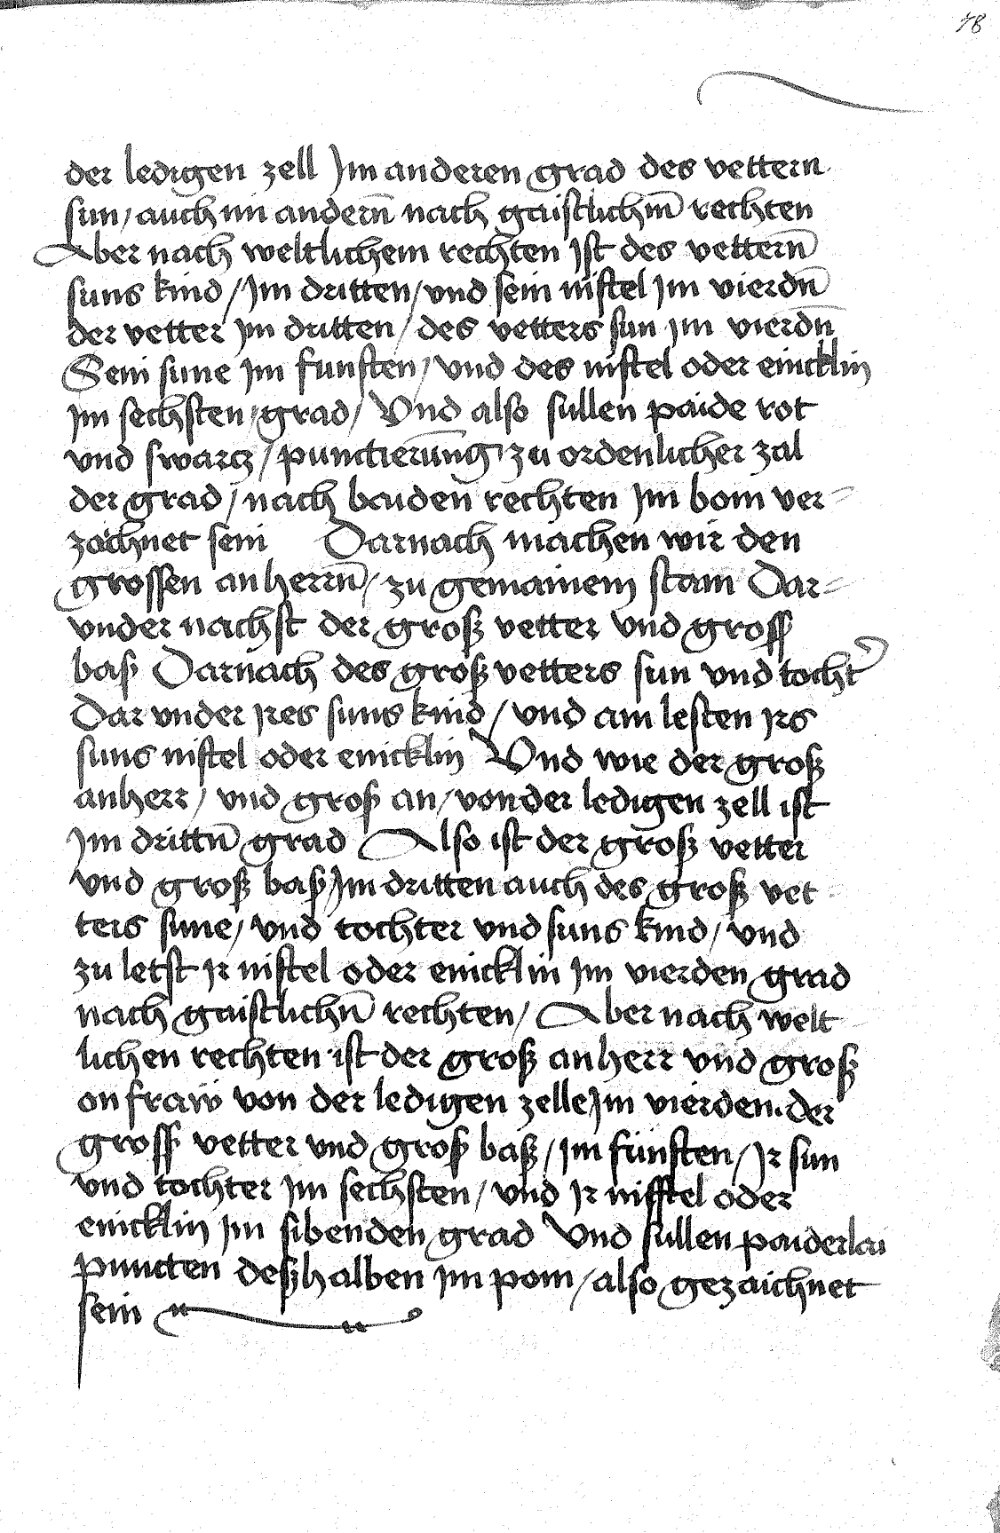 78
der ledigen zell Im anderen grad des vettern
sun / auch im andern̄ nach gaistlichm̄ rechten
Aber nach weltlichem rechten ist des vettern̄
suns kind / Im dritten / vnd sein niftel Im vierdn̄
der vetter Im dritten / des vetters sun Im vierdn̄
Sein sune Im funften / vnd des niftel oder einicklin
Im sechsten / grad / Vnd also sullen paide rot
vnd swarcz / punctierūng zu ordenlicher zal
der grad / nach bauden rechten Im bom ver=
zaichnet sein Darnach machen wir den
grossen anherrn̄ / zu gemainem stam Dar=
vnder nachst der groß vetter vnd gross
baß Darnach des groß vetters sun vnd tocht̄
Dar vnder Ires suns kind / vnd am lesten Irs
suns niftel oder enicklin Vnd wie der groß
anherr / vnd groß an / von der ledigen zell ist
Im drittn̄ grad Also ist der groß vetter
vnd groß baß Im dritten auch des groß vet=
ters sune / vnd tochter vnd suns kind / vnd
zu letst Ir niftel oder enicklin Im vierden grad
nach gaistlichn̄ rechten / Aber nach welt
lichen rechten ist der groß anherr vnd groß
onfraw von der ledigen zelle Im vierden. der
gross vetter vnd groß baß / Im fünften / Ir sun
vnd tochter Im sechsten / vnd Ir nifftel oder
enicklin Im sibenden grad Vnd sullen paiderlai
puncten deßhalben Im pom / also gezaichnet
sein